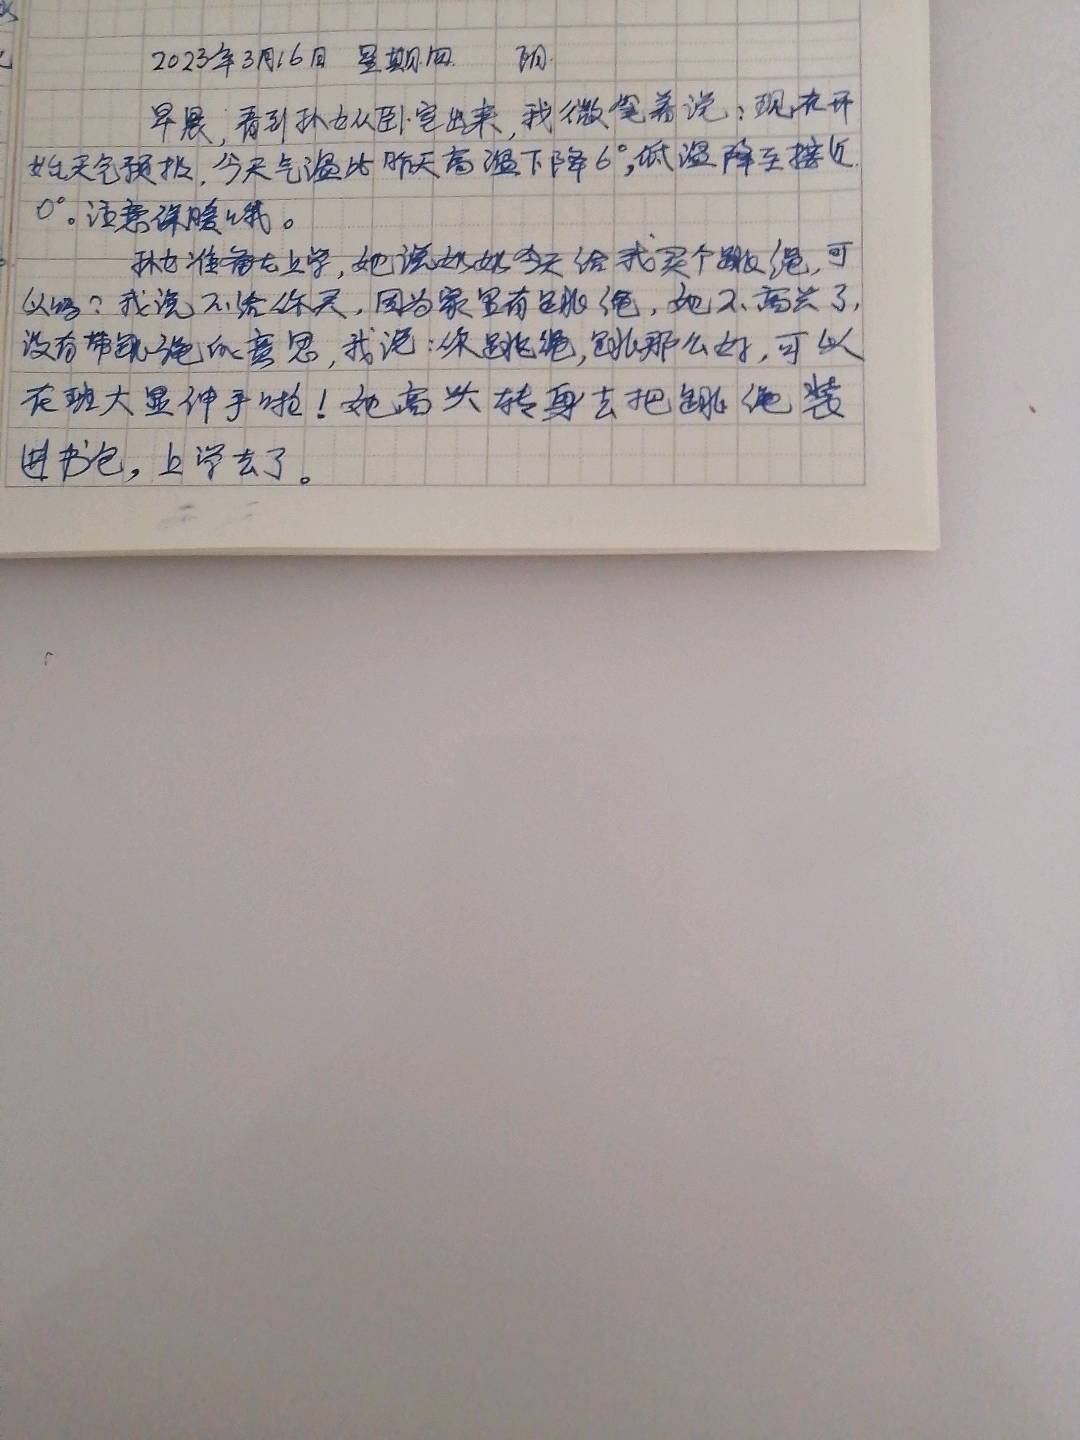 2023年3月16日 星期四 阴
早晨,看到孙女从卧室出来,我微笑着说:现在开
始天气预报,今天气温比昨天高温下降6°,低温降至接近
0°。注意保暖哦。
孙女准备去上学,她说奶奶今天给我买个跳绳,可
以吗?我说不给你买,因为家里有跳绳,她不高兴了,
没有带跳绳的意思,我说:你跳绳,跳那么好,可以
在班大显伸手啦!她高兴转身去把跳绳装
进书包,上学去了。